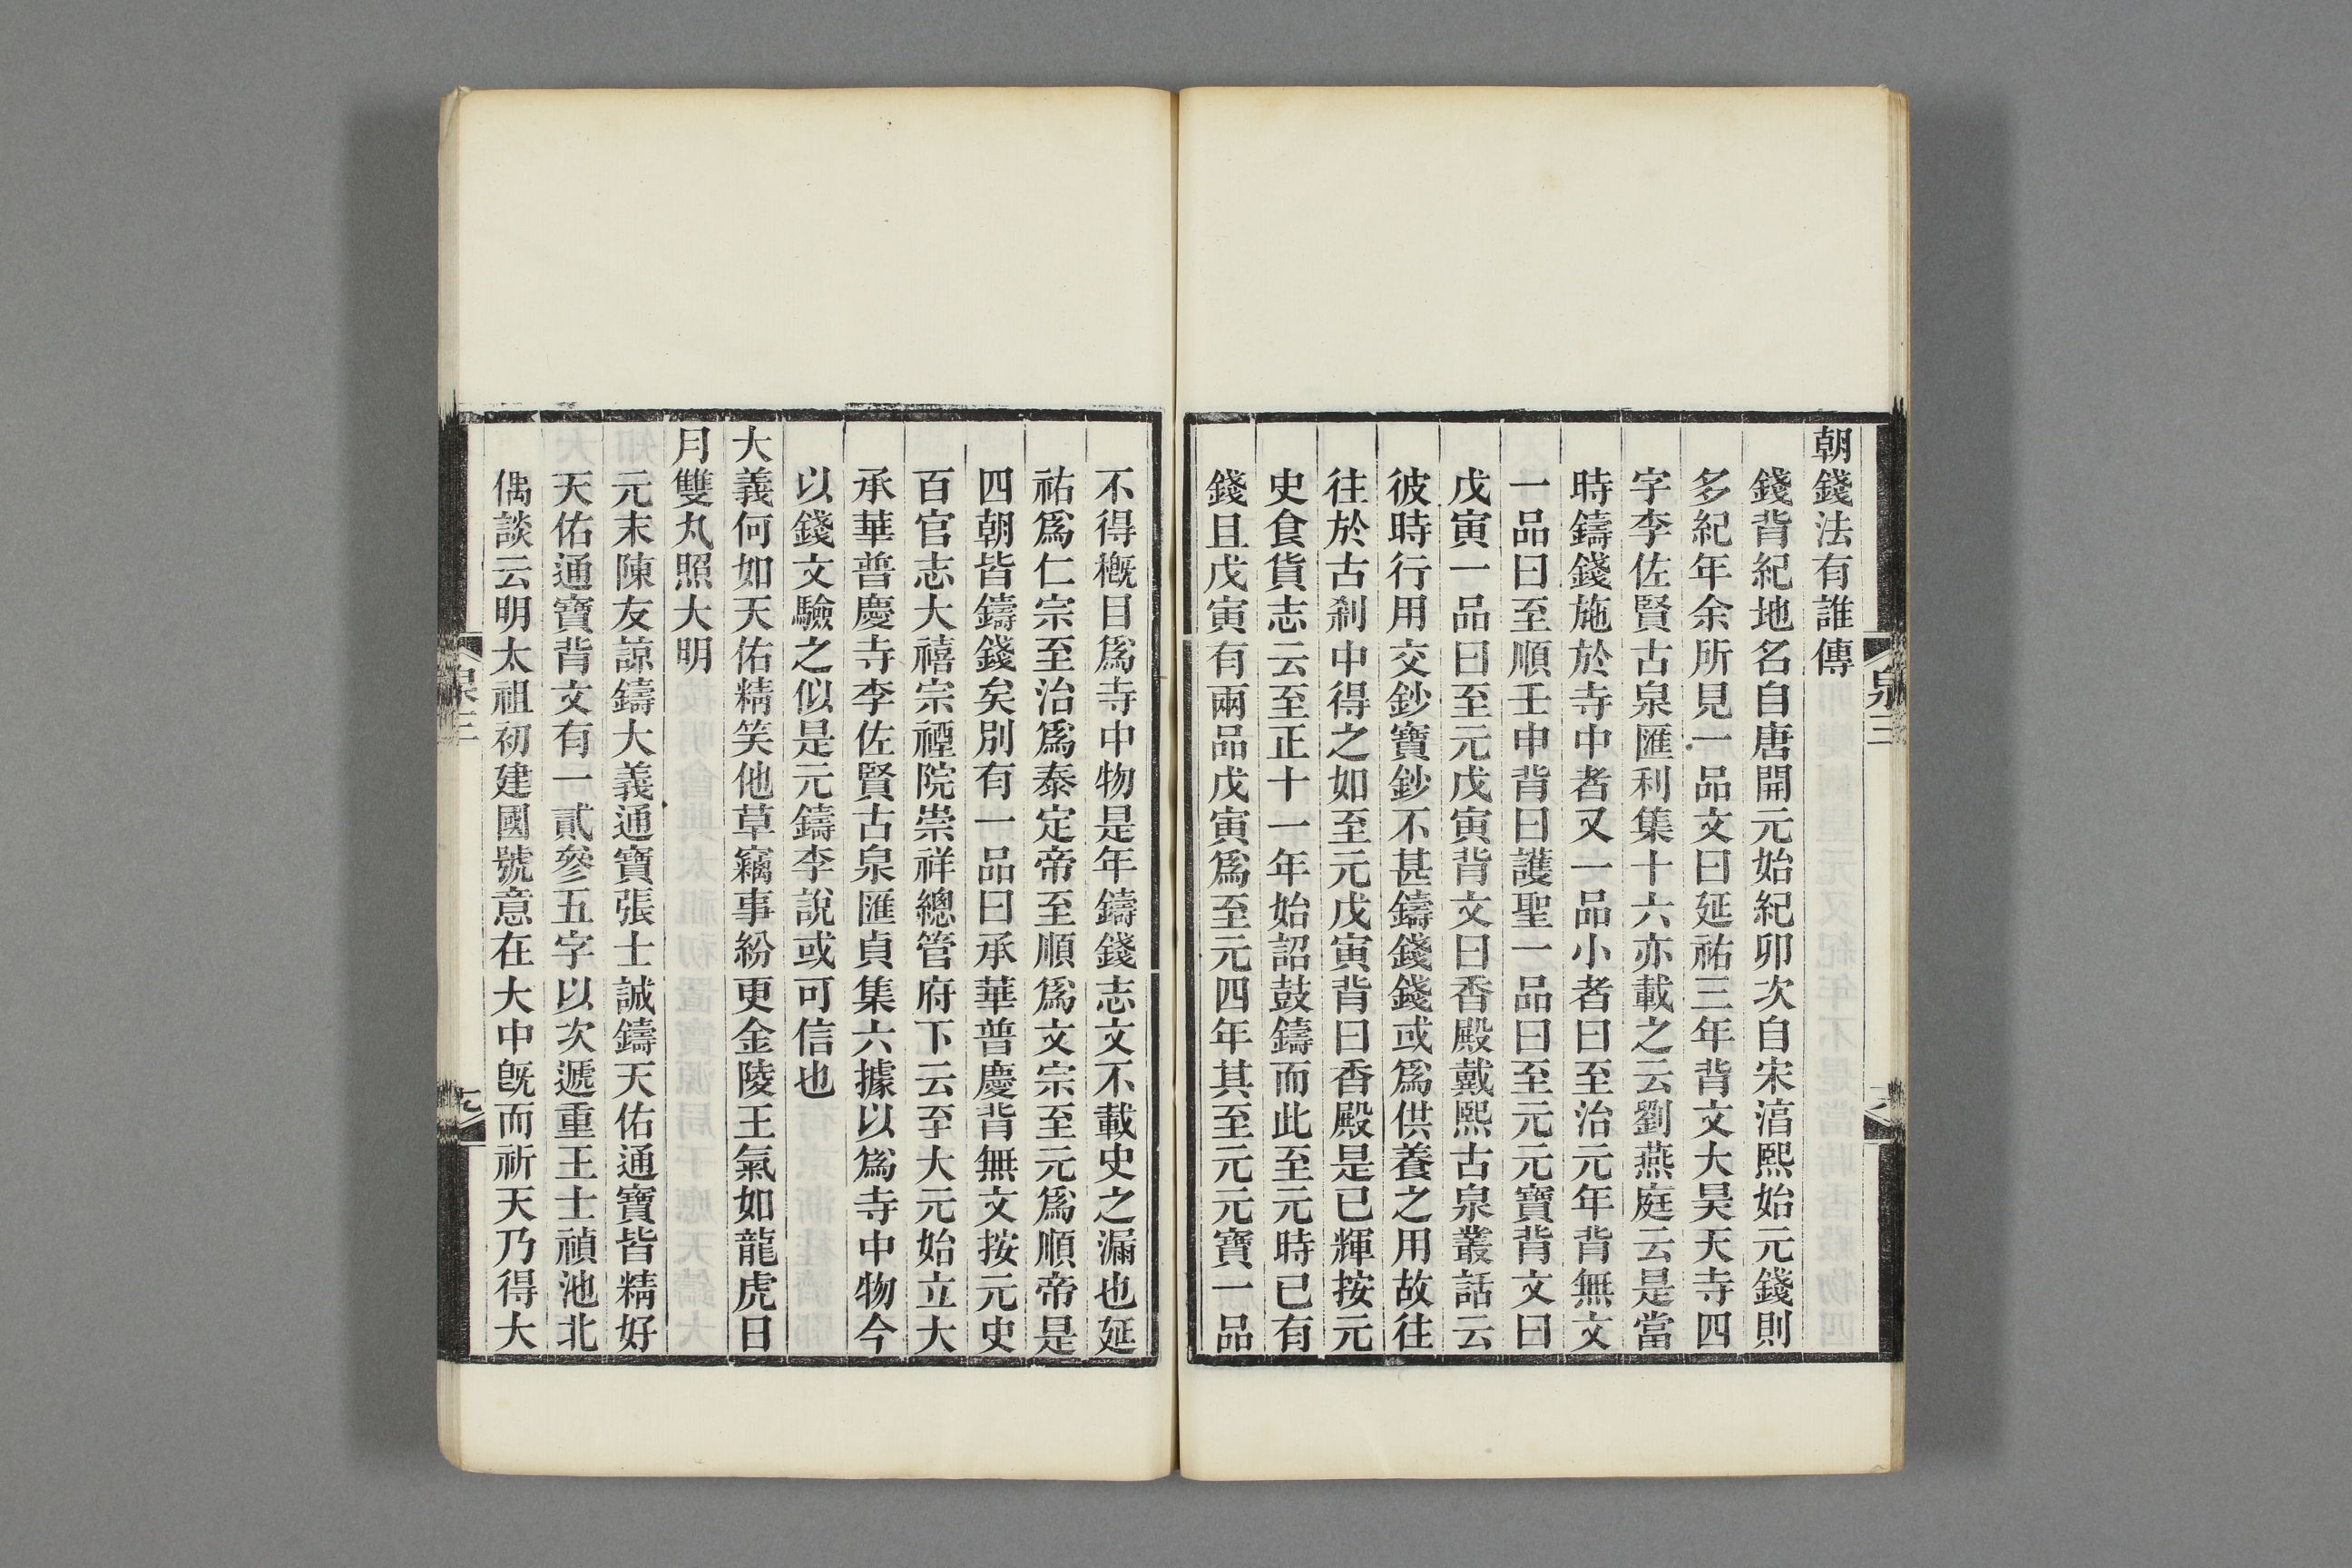 朝錢法有誰傳
錢背紀地名自唐開元始紀卯次自宋淳熙始元錢則
多紀年余所見一品文曰延祐三年背文大昊天寺四
字李佐賢古泉匯利集十六亦載之云劉燕庭云是當
時鑄錢施於寺中者又一品小者曰至治元年背無文
一品曰至順壬申背曰護聖一品曰至元元寶背文曰
戊寅一品曰至元戊寅背文曰香殿戴熙古泉叢話云
彼時行用交鈔寶鈔不甚鑄錢錢或爲供養之用故往
往於古刹中得之如至元戊寅背曰香殿是已輝按元
史食貨志云至正十一年始詔鼓鑄而此至元時已有
錢且戊寅有兩品戊寅爲至元四年其至元元寶一品
泉三
不得概目爲寺中物是年鑄錢志文不載史之漏也延
祐爲仁宗至治爲泰定帝至順爲文宗至元爲順帝是
四朝皆鑄錢矣別有一品曰承華普慶背無文按元史
百官志大禧宗禋院崇祥總管府下云至大元始立大
承華普慶寺李佐賢古泉匯貞集六據以爲寺中物今
以錢文驗之似是元鑄李說或可信也
大義何如天佑精笑他草竊事紛更金陵王氣如龍虎日
月雙丸照大明
元末陳友諒鑄大義通寶張士誠鑄天佑通寶皆精好
天佑通寶背文有一貳參五字以次遞重王士禎池北
偶談云明太祖初建國號意在大中旣而祈天乃得大
泉三